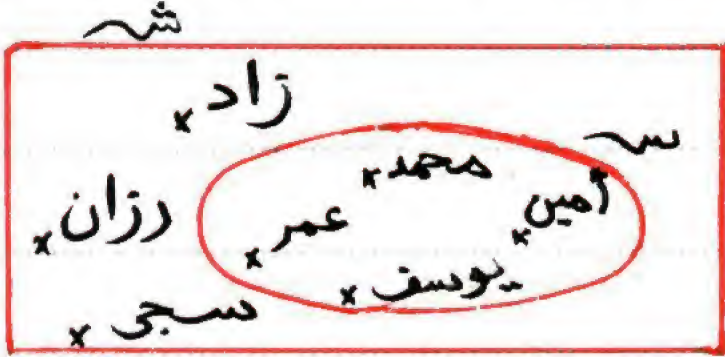 شـ
زاد
سـ
محمد
أمين
رزان
عمر
يوسف
سجى